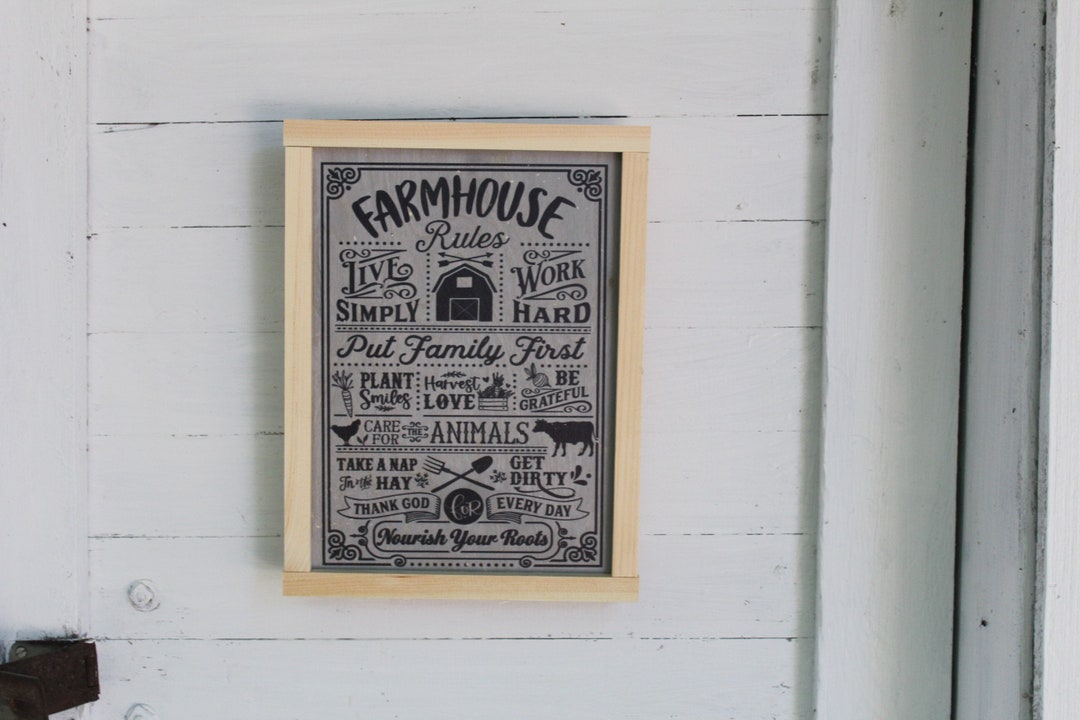 FARMHOUSE
Rules
LIVE
SIMPLY
WORK
HARD
Put Family First
PLANT
Smiles
Harvest
LOVE
BE
GRATEFUL
CARE
FOR THE ANIMALS
TAKE A NAP
In the HAY
GET
DIRTY
THANK GOD FOR EVERY DAY
Nourish Your Roots